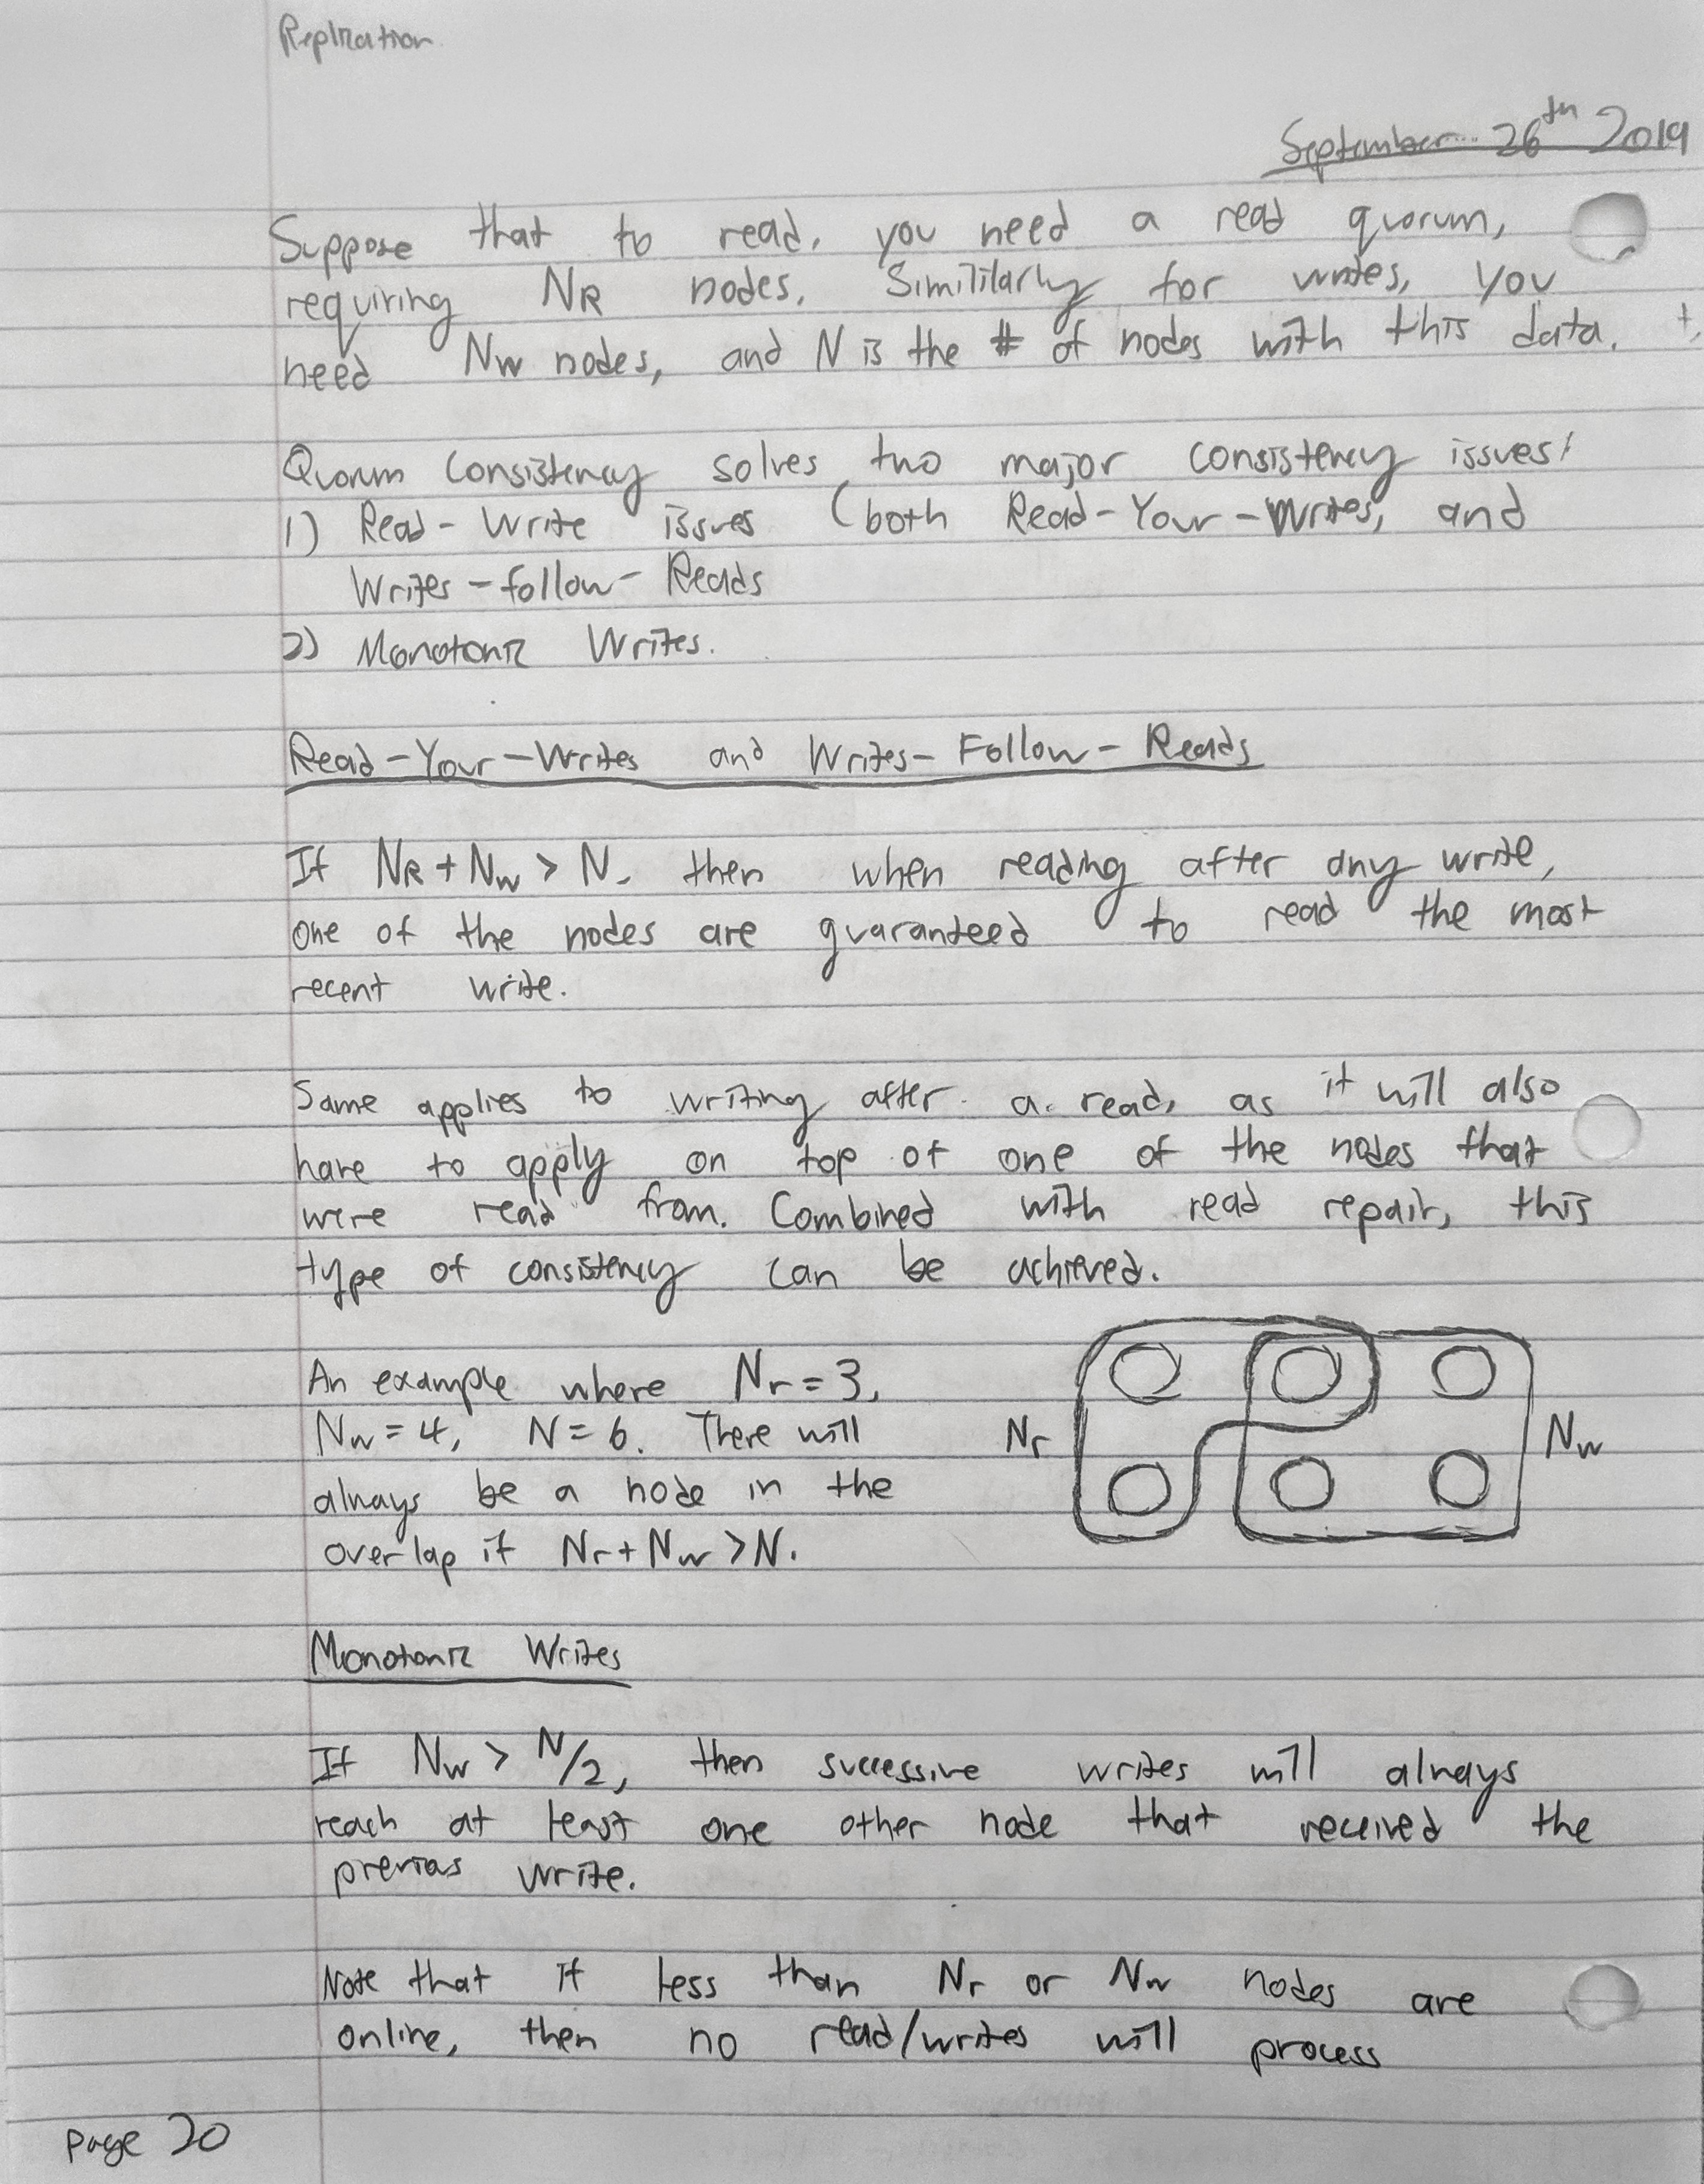 Replication
September 26th 2019
Suppose that to read, you need a read quorum,
requiring NR nodes. Simililarly for writes, you
need Nw nodes, and N is the # of nodes with this data.
Quorum consistency solves two major consistency issues!
1) Read-Write issues (both Read-Your-Writes, and
Writes-follow-Reads
2) Monotonic Writes.
Read-Your-Writes and Writes-Follow-Reads
If NR + Nw > N, then when reading after any write,
one of the nodes are guaranteed to read the most
recent write.
Same applies to writing after a read, as it will also
have to apply on top of one of the nodes that
were read from. Combined with read repair, this
type of consistency can be achieved.
An example where Nr = 3,
Nw = 4, N = 6. There will
always be a node in the
overlap if Nr + Nw > N.
Nr
Nw
Monotonic Writes
If Nw > N/2, then successive writes will always
reach at least one other node that received the
previous write.
Note that if less than Nr or Nw nodes are
online, then no read/writes will process
page 20